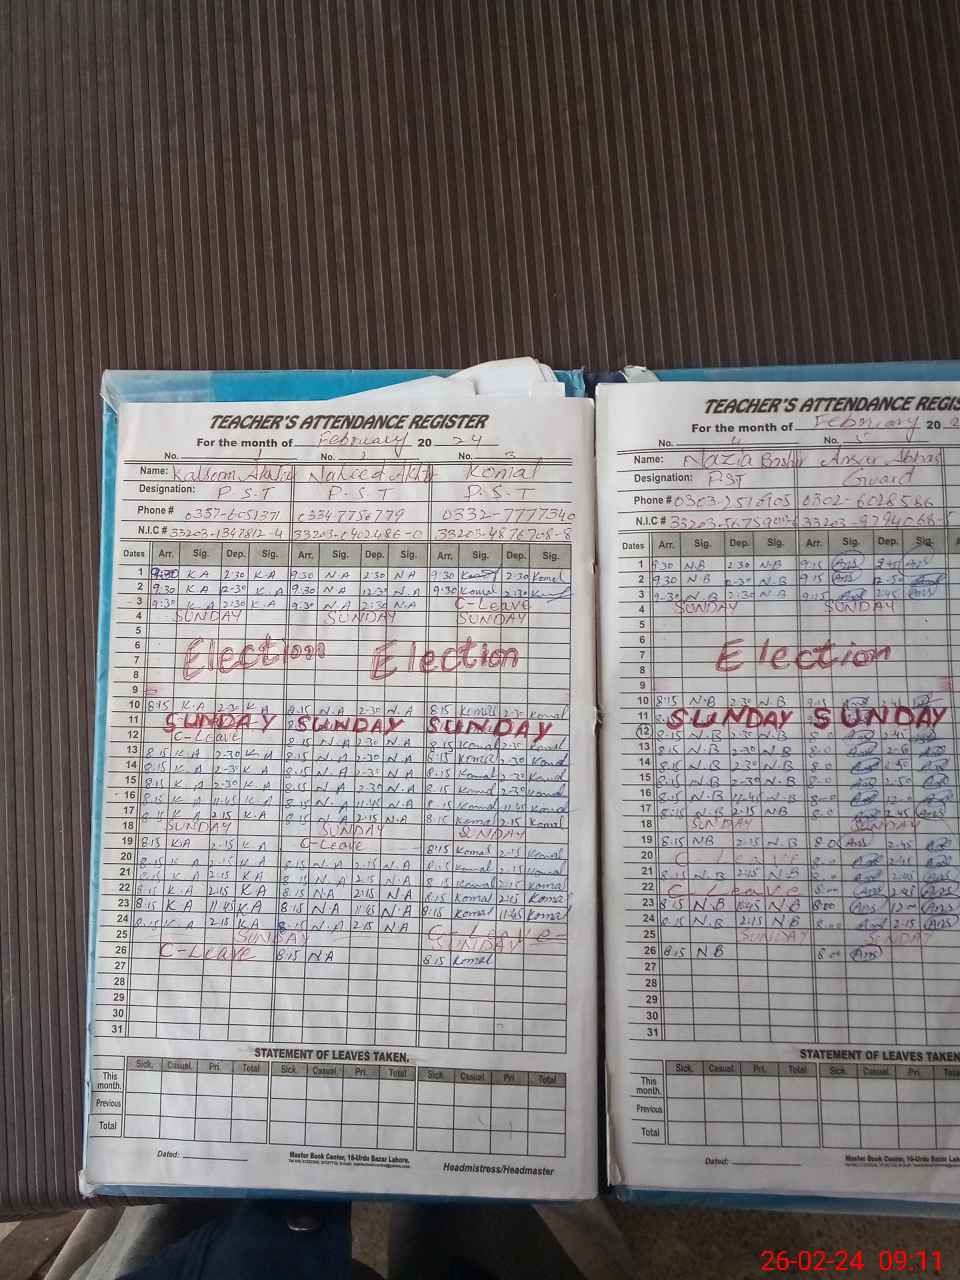 TEACHER'S ATTENDANCE REGISTER
For the month of February 20 24
No. 1 No. 2 No. 3
Name: Naheed Akhtar Komal
Designation: P.S.T P.S.T P.S.T
Phone # 0332-7777340
N.I.C #
Dates Arr. Sig. Dep. Sig. Arr. Sig. Dep. Sig. Arr. Sig. Dep. Sig.
1 9:30 K.A 2:30 K.A 9:30 N.A 2:30 N.A 9:30 Komal 2:30 Komal
2 9:30 K.A 12:30 K.A 9:30 N.A 12:30 N.A 9:30 Komal
3 9:30 K.A 2:30 K.A 9:30 N.A 2:30 N.A C-Leave
4 SUNDAY SUNDAY SUNDAY
5
6
7 Election Election
8
9
10 8:15 K.A 2:30 K.A 8:15 N.A 2:30 N.A 8:15 Komal 2:30 Komal
11 SUNDAY SUNDAY SUNDAY
12 C-Leave 8:15 N.A 2:30 N.A 8:15 Komal 2:30 Komal
13 8:15 K.A 2:30 K.A 8:15 N.A 2:30 N.A 8:15 Komal 2:30 Komal
14 8:15 K.A 2:30 K.A 8:15 N.A 2:30 N.A 8:15 Komal 2:30 Komal
15 8:15 K.A 2:30 K.A 8:15 N.A 2:30 N.A 8:15 Komal 2:30 Komal
16 8:15 K.A 11:45 K.A 8:15 N.A 11:45 N.A 8:15 Komal 11:45 Komal
17 8:15 K.A 2:15 K.A 8:15 N.A 2:15 N.A 8:15 Komal 2:15 Komal
18 SUNDAY SUNDAY SUNDAY
19 8:15 K.A 2:15 K.A C-Leave 8:15 Komal 2:15 Komal
20 8:15 K.A 2:15 K.A 8:15 N.A 2:15 N.A 8:15 Komal 2:15 Komal
21 8:15 K.A 2:15 K.A 8:15 N.A 2:15 N.A 8:15 Komal 2:15 Komal
22 8:15 K.A 2:15 K.A 8:15 N.A 2:15 N.A 8:15 Komal 2:15 Komal
23 8:15 K.A 11:45 K.A 8:15 N.A 11:45 N.A 8:15 Komal 11:45 Komal
24 8:15 K.A 2:15 K.A 8:15 N.A 2:15 N.A C-Leave
25 SUNDAY SUNDAY
26 C-Leave 8:15 N.A 8:15 Komal
27
28
29
30
31
STATEMENT OF LEAVES TAKEN.
Sick. Casual. Pri. Total Sick. Casual. Pri. Total Sick. Casual. Pri. Total
This month.
Previous
Total
Dated:
Master Book Center, 16-Urdu Bazar Lahore.
Headmistress/Headmaster
TEACHER'S ATTENDANCE REGIS
For the month of February 20 2
No. 4 No. 5
Name: Nazia Bashir Ansar Abbas
Designation: PST Guard
Phone # 0302-6028586
N.I.C #
Dates Arr. Sig. Dep. Sig. Arr. Sig. Dep. Sig.
1 9:30 N.B 2:30 N.B 9:15
2 9:30 N.B 12:30 N.B 9:15
3 9:30 N.B 2:30 N.B 9:15 2:45
4 SUNDAY SUNDAY
5
6
7 Election
8
9
10 8:15 N.B 2:30 N.B
11 SUNDAY SUNDAY
12 8:15 N.B 2:30 N.B 8:00 2:45
13 8:15 N.B 2:30 N.B 8:00
14 8:15 N.B 2:30 N.B 8:00
15 8:15 N.B 2:30 N.B 8:00 2:50
16 8:15 N.B 11:45 N.B 8:00 12:00
17 8:15 N.B 2:15 N.B 8:00 2:45
18 SUNDAY SUNDAY
19 8:15 N.B 2:15 N.B 8:00 2:45
20 C-Leave 8:00 2:45
21 8:15 N.B 2:15 N.B 8:00 2:45
22 C-Leave 8:00 2:45
23 8:15 N.B 11:45 N.B 8:00 12:00
24 8:15 N.B 2:15 N.B 8:00 2:15
25 SUNDAY SUNDAY
26 8:15 N.B 8:00
27
28
29
30
31
STATEMENT OF LEAVES TAKEN
Sick. Casual. Pri. Total Sick. Casual. Pri. Total
This month.
Previous
Total
Dated:
Master Book Center, 16-Urdu Bazar Lahore.
26-02-24 09:11